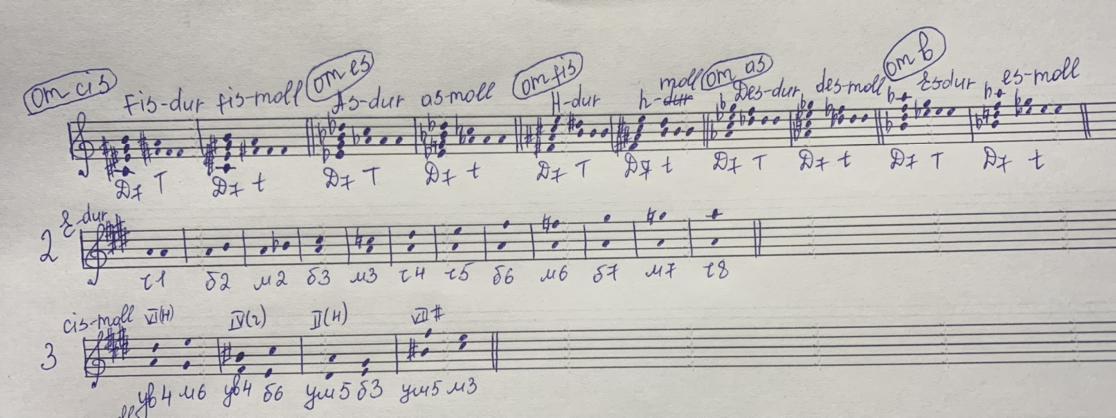 от cis Fis-dur fis-moll от es As-dur as-moll от fis H-dur h-moll от as Des-dur des-moll от b Es-dur es-moll
Д7 T Д7 t Д7 T Д7 t Д7 T Д7 t Д7 T Д7 t Д7 T Д7 t
2 E-dur
ч1 б2 м2 б3 м3 ч4 ч5 б6 м6 б7 м7 ч8
cis-moll VI(н) IV(г) II(н) VII#
3
ув4 м6 ув4 б6 ум5 б3 ум5 м3